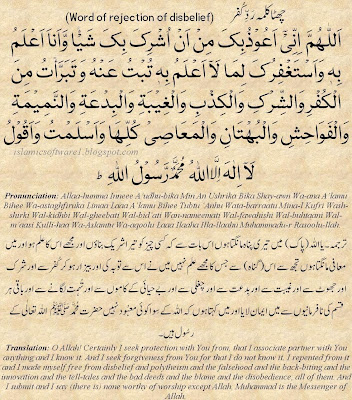 (Word of rejection of disbelief) چھٹا کلمہ ردِّ کفر
اَللّٰهُمَّ اِنِّیْٓ اَعُوْذُ بِکَ مِنْ اَنْ اُشْرِکَ بِکَ شَیْأً وَّاَنَا اَعْلَمُ
بِهٖ وَاَسْتَغْفِرُکَ لِمَا لَآ اَعْلَمُ بِهٖ تُبْتُ عَنْهُ وَتَبَرَّأْتُ مِنَ
الْکُفْرِ وَالشِّرْکِ وَالْکِذْبِ وَالْغِیْبَةِ وَالْبِدْعَةِ وَالنَّمِیْمَةِ
وَالْفَوَاحِشِ وَالْبُهْتَانِ وَالْمَعَاصِیْ کُلِّهَا وَاَسْلَمْتُ وَاَقُوْلُ
islamicsoftware1.blogspot.com
لَآ اِلٰهَ اِلَّا اللهُ مُحَمَّدٌ رَّسُوْلُ اللهِ ط
Pronunciation: Allaa-humma Inneee A'udhu-bika Min An Ushrika Bika Shay-awn Wa-ana A'lamu
Bihee Wa-astaghfiruka Limaa Laaa A'lamu Bihee Tubtu 'Anhu Wata-barraatu Mina-l Kufri Wash-
shirki Wal-kidhbi Wal-gheebati Wal-bid'ati Wan-nameemati Wal-fawahishi Wal-buhtaani Wal-
m'aasi Kulli-haa Wa-Aslamtu Wa-aqoolu Laaa Ilaaha Illa-llaahu Muhammadu-r Rasoolu-llah
ترجمہ۔ یا اللہ (پاک) میں تیری پناہ مانگتا ہوں اس بات سے کہ کسی چیز کو تیرا شریک بناؤں اور مجھے اس کا علم ہو اور میں
معافی مانگتا ہوں تجھ سے اس (گناہ) سے جس کا مجھے علم نہیں میں نے اس سے توبہ کی اور بیزار ہوا کفر سے اور شرک
اور جھوٹ سے اور غیبت سے اور بدعت سے اور چغلی سے اور بے حیائی کے کاموں سے اور تہمت لگانے سے اور باقی ہر
قسم کی نافرمانیوں سے میں ایمان لایا اور میں کہتا ہوں کہ اللہ کے سوا کوئی معبود نہیں حضرت محمد ﷺ اللہ تعالٰی کے
رسول ہیں۔
Translation: O Allah! Certainly I seek protection with You from, that I associate partner with You
anything and I know it. And I seek forgiveness from You for that I do not know it. I repented from it
and I made myself free from disbelief and polytheism and the falsehood and the back-biting and the
innovation and the tell-tales and the bad deeds and the blame and the disobedience, all of them. And
I submit and I say (there is) none worthy of worship except Allah, Muhammad is the Messenger of
Allah.